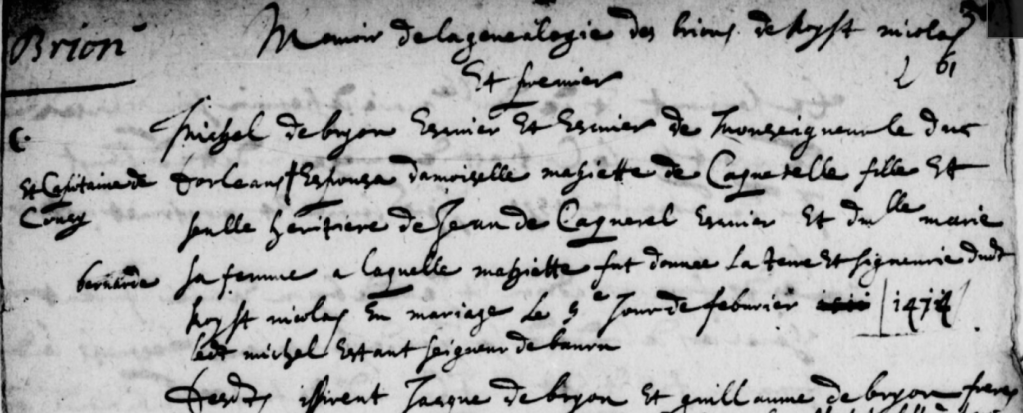 Brion
Memoir de la genealogie des brions de Royst nicolas
Et premier
61
Michel de bryon Escuier Et Escuier de monseigneur le duc
Et Capitaine de
Coucy
dorleans Espousa damoiselle mahiette de Caquerelle fille Et
seulle heritiere de Jean de Caquerel Escuier Et dlle marie
bernarde
sa femme a laquelle mahiette fut donnee La terre Et signeurie dudt
Royst nicolas En mariage Le 9e Jour de febvrier 1474
ledt michel Estant seigneur de
Desdts issirent Jacque de bryon Et guillaume de bryon freres